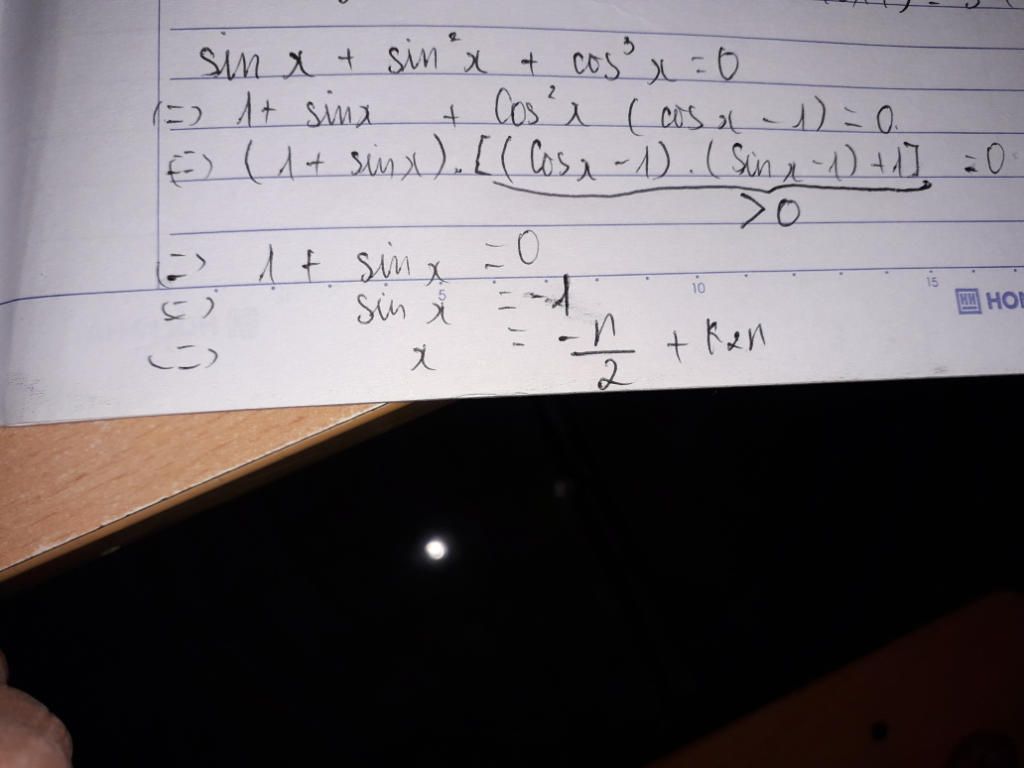 sin x + sin²x + cos³x = 0
(=) 1 + sinx + Cos²x (cosx - 1) = 0.
(=) (1 + sinx). [(Cosx - 1). (Sinx - 1) + 1] = 0
> 0
(=) 1 + sin x = 0
(=) sin x = -1
(=) x = -π/2 + k2π
5 10 15